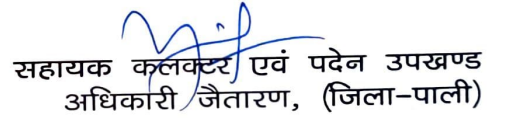 सहायक कलक्टर एवं पदेन उपखण्ड
अधिकारी जैतारण, (जिला-पाली)